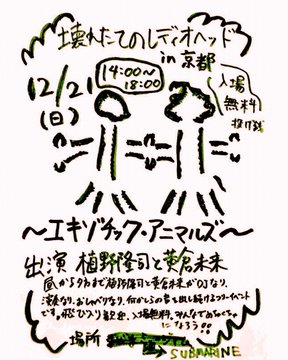 壊れたてのレディオヘッド
in 京都
12/21
(日)
14:00〜
18:00
入場
無料
投げ銭
〜エキゾチック・アニマルズ〜
出演 植野隆司と黄倉未来
昼から夕方まで植野隆司と黄倉未来がDJなり、
演奏なり、おしゃべりなり、何かしらの音を出し続けるフリーイベント
です。飛び入り歓迎、入場無料。みんなでめちゃくちゃ
になろう!!
場所
→ SUBMARINE